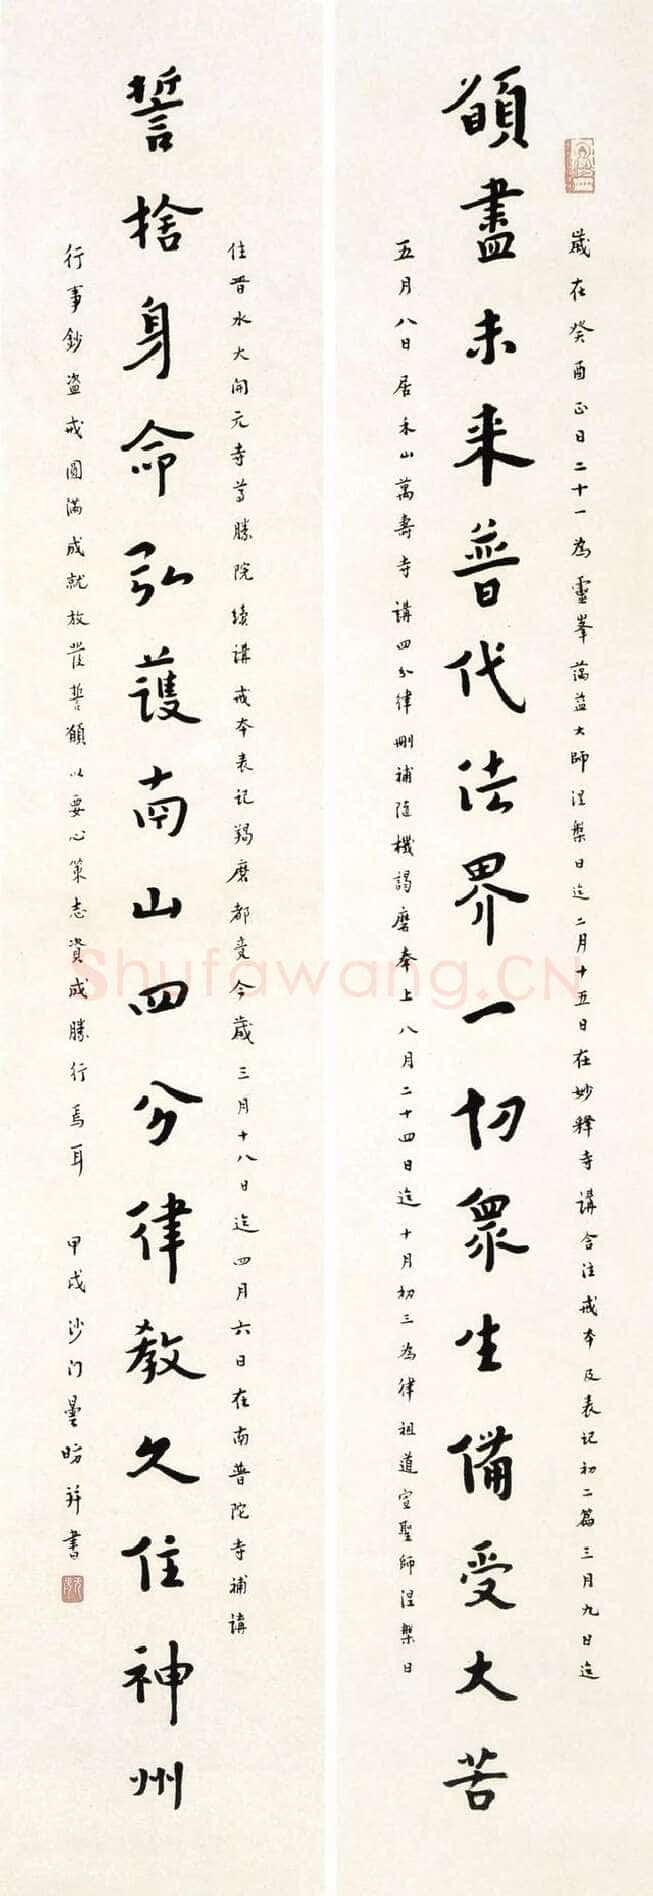 歲在癸酉正日二十一為靈峯蕅益大師涅槃日迄二月十五日在妙釋寺講含注戒本及表記初二篇三月九日迄
願盡未来普代法界一切眾生備受大苦
五月八日居禾山萬壽寺講四分律刪補隨機羯磨奉上八月二十四日迄十月初三為律祖道宣聖師涅槃日
住晋水大開元寺尊勝院續講戒本表記羯磨都竟今歲三月十八日迄四月六日在南普陀寺補講
誓捨身命弘護南山四分律教久住神州
行事鈔盜戒圓滿成就放發誓願以要心策志資成勝行焉耳 甲戌沙门曇昉并書
Shufawang.CN